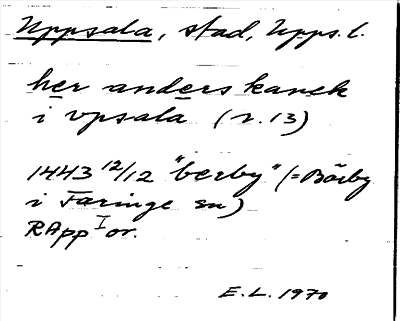 Uppsala, stad, Upps. l.
her anders kanek
i vpsala (r. 13)
1443 12/12 "berby" (= Bärby
i Faringe sn)
RApp I or.
E.L. 1970